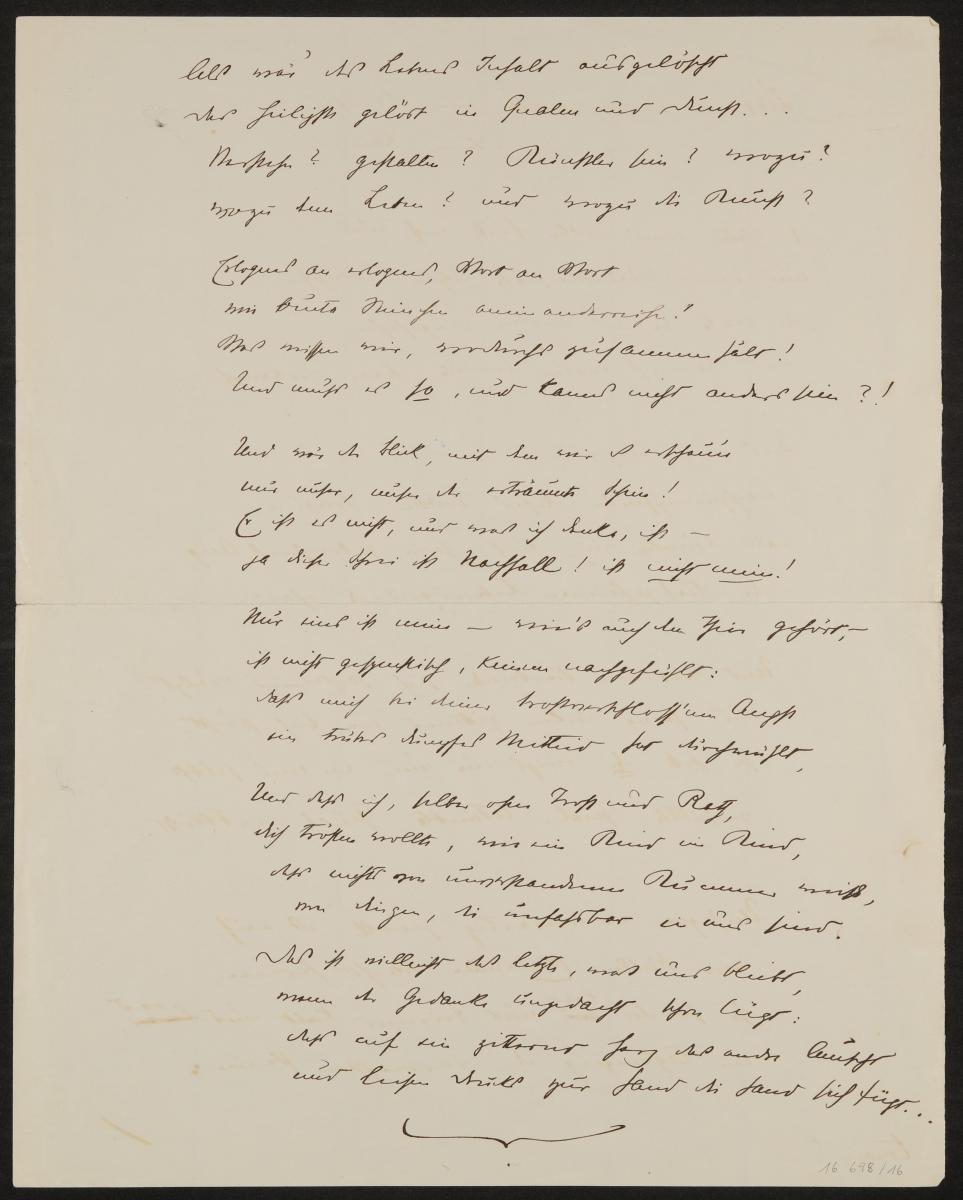 Als wär' des Lebens Inhalt ausgelöscht
das Heiligste gelöst in Qualm und Dunst...
Verstehn? gestalten? Künstler sein? wozu?
wozu denn Leben? und wozu die Kunst?
Erlognes an erlognes, Wort an Wort
wie bunte Steinchen aneinanderreihn!
Was wissen wir, wodurchs zusammenhält!
Und muß es so, und kanns nicht anders sein?!
Und wär der Blick, mit dem wir's erschaun
nur unser, unser der erträumte Schein!
Er ist es nicht, und was ich denke, ist –
ja dieser Schrei ist Nachhall! ist nicht mein!
Nur eins ist mein – wie's auch dem Thier gehört,–
ist nicht gespenstisch, keinem nachgefühlt:
daß mich bei deiner trostverschloss'nen Angst
ein trübes dumpfes Mitleid hat durchwühlt,
Und daß ich, selber ohne Trost und Rath,
dich trösten wollte, wie ein Kind ein Kind,
das nichts von unverstandenem Kummer weiß,
von Dingen, die unfaßbar in uns sind.
Das ist vielleicht das letzte, was uns bleibt,
wenn der Gedanke ungedacht schon lügt:
daß auf ein zitternd Herz das andre lauscht
und leisen Drucks zur Hand die Hand sich fügt...
16 698/16